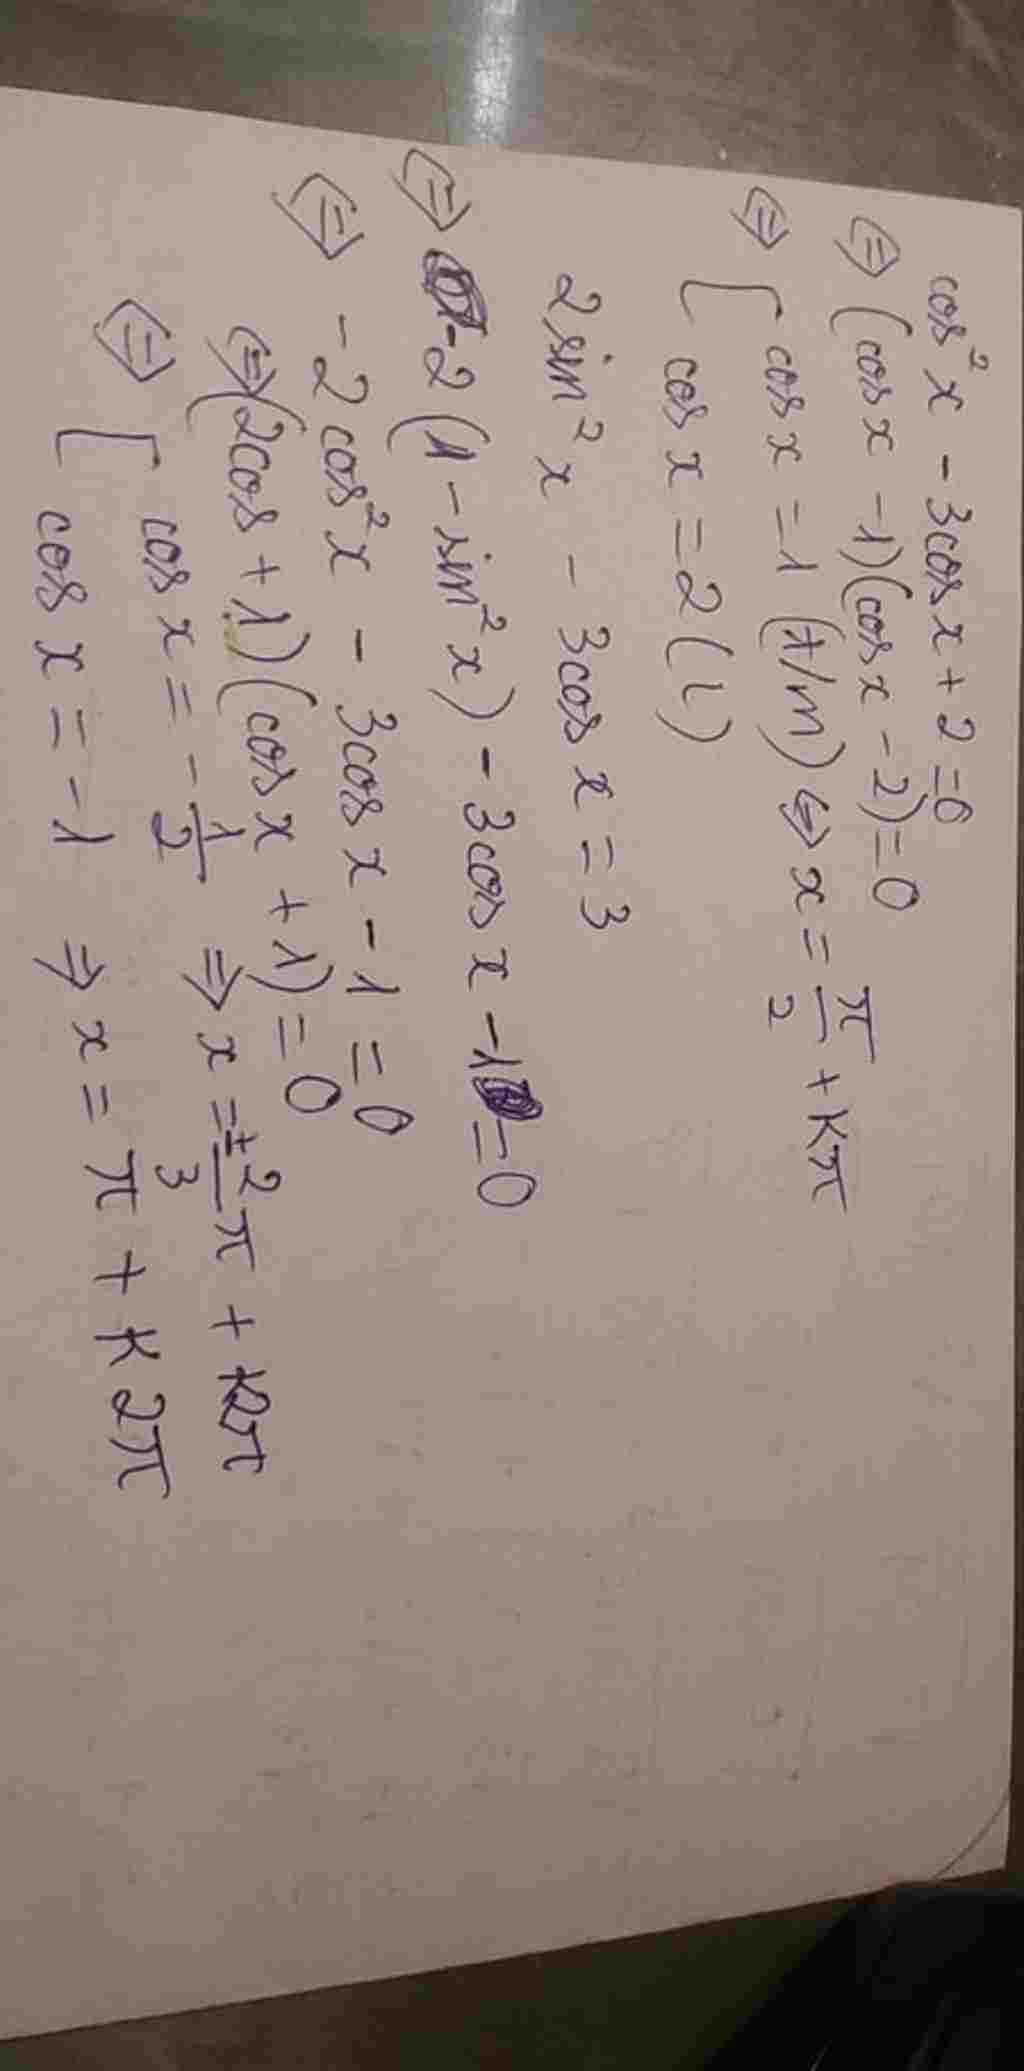 cos²x - 3cosx + 2 = 0
⇔ (cosx - 1)(cosx - 2) = 0
⇔ [ cosx = 1 (t/m) ⇔ x = π/2 + kπ
cosx = 2 (L)
2sin²x - 3cosx = 3
⇔ -2(1 - sin²x) - 3cosx - 1 = 0
⇔ -2cos²x - 3cosx - 1 = 0
⇔ (2cos + 1)(cosx + 1) = 0
⇔ [ cosx = -1/2 ⇒ x = ±2/3π + k2π
cosx = -1 ⇒ x = π + k2π